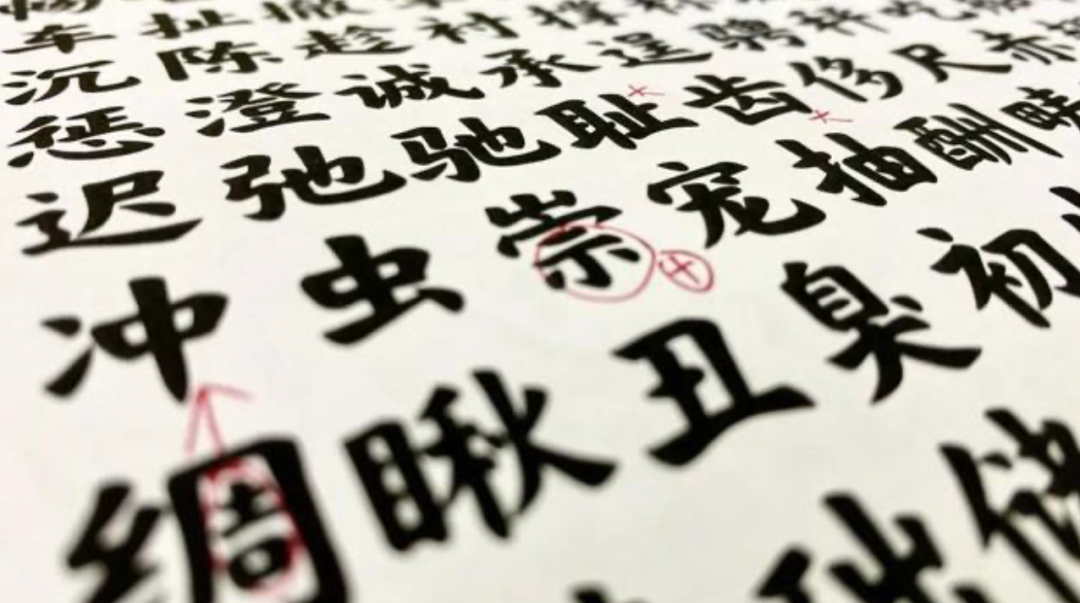 车扯撤
沉陈趁衬撑称
惩澄诚承逞骋秤吃
迟弛驰耻齿侈尺赤
冲虫崇宠抽酬畴
绸瞅丑臭初